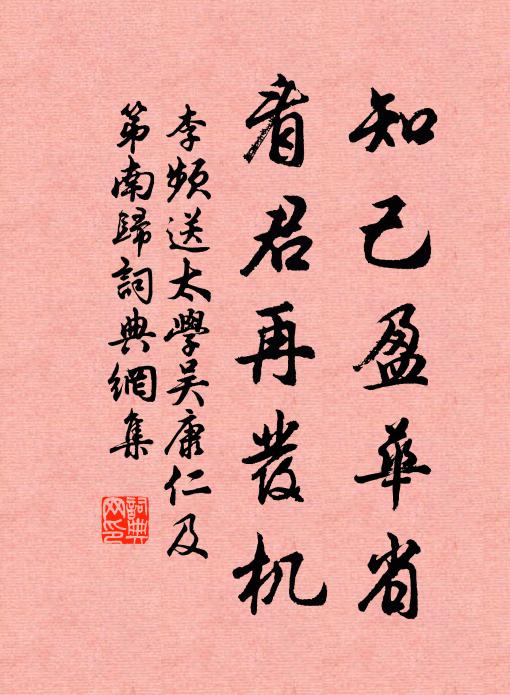 知己盈華省
看君再發机
李頻送太學吳康仁及
第南歸詞典網集
詞典
网印